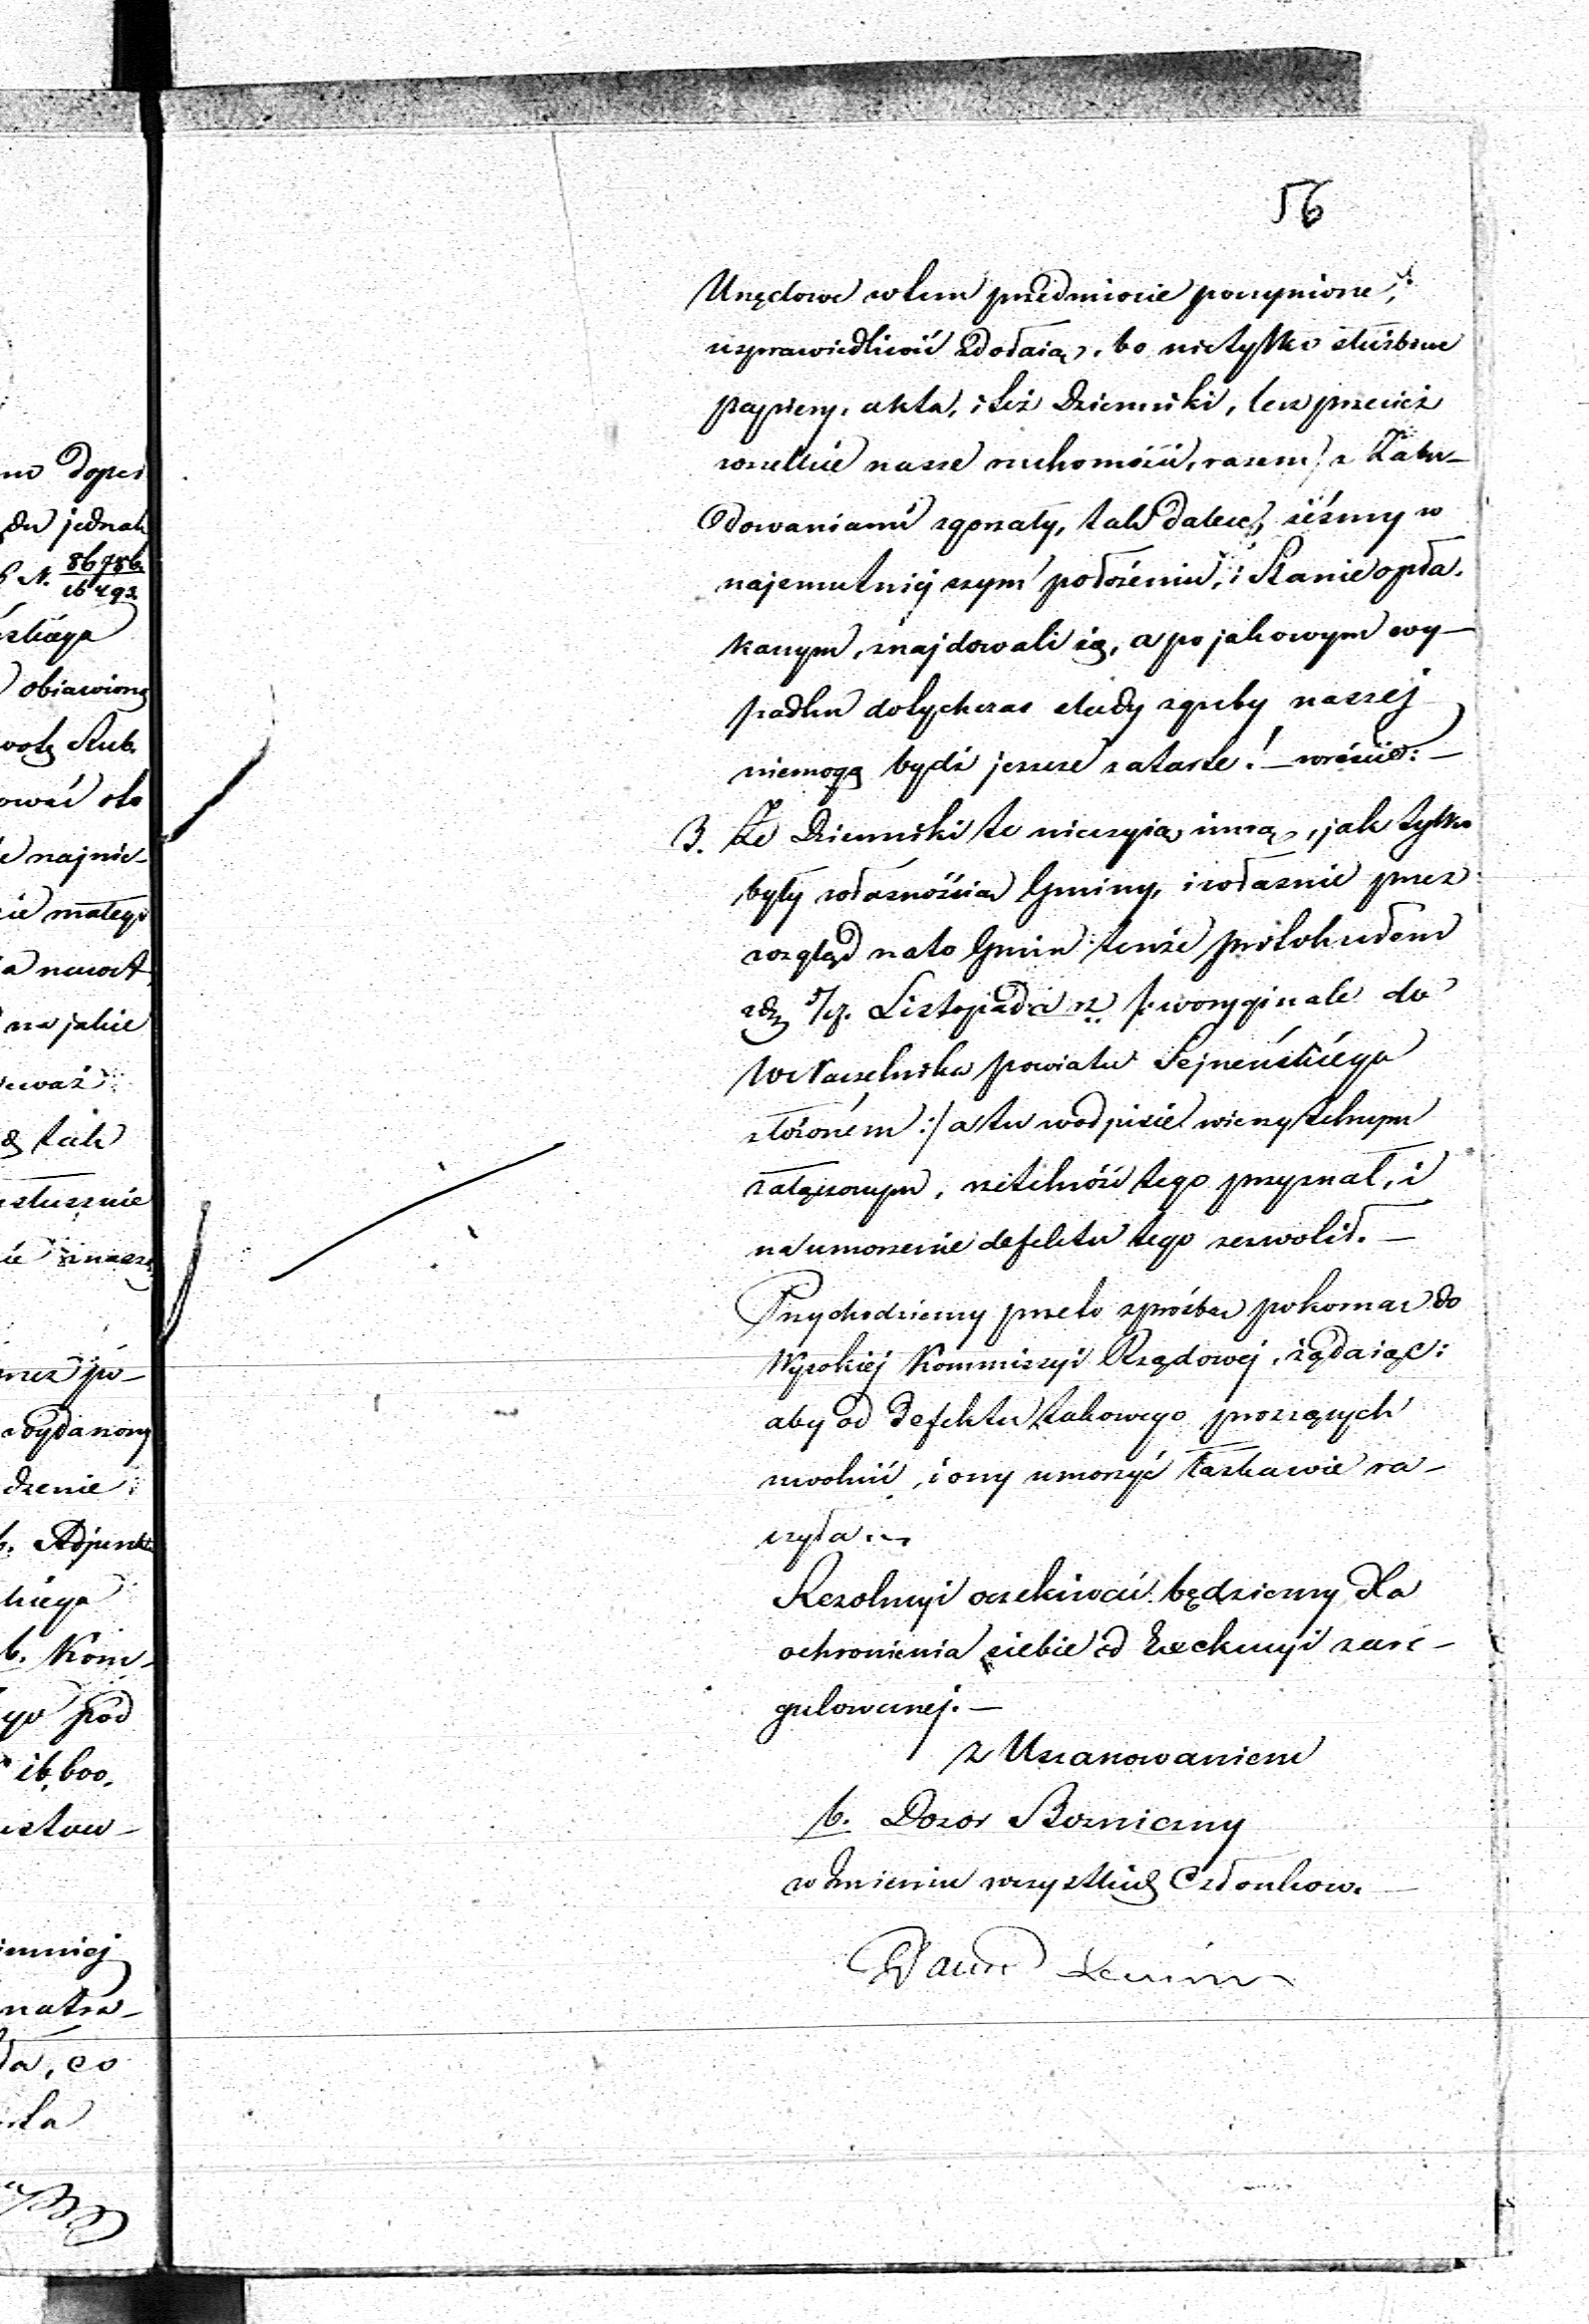 56
Urzędowe w tem przedmiocie poczynione,
usprawiedliwić zdołaią, bo nietylko służbowe
papiery, akta, i też Dzienniki, lecz przecież
wszelkie nasze ruchomości, razem z Zabu-
dowaniami zgorzały, tak dalece, żeśmy w
najsmutniejszym położeniu, i Stanie opła-
kanym, znajdowali się, a po jakowym wy-
padku dotychczas ślady zguby naszej
niemogą bydź jeszcze zatarte! – wreście: –
3. Że Dzienniki te niczyią inną, jak tylko
były własnością Gminy, i właśnie przez
wzgląd na to Gmin tenże protokułem
z d. 5/17. Listopada rz /: w oryginale do
W Naczelnika powiatu Sejneńskiego
złożonem :/ a tu w odpisie wierzytelnym
załączonym, rzetelność tego przyznał, i
na umorzenie defektu tego zezwolił. –
Przychodziemy przeto z prośbą pokorną do
Wysokiej Kommissyi Rządowej, żądaiąc:
aby od defektu takowego proszących
uwolnić, i ony umorzyć łaskawie ra-
czyła. –
Rezolucyi oczekiwać będziemy dla
ochronienia siebie od Exekucyi zare-
gulowanej. –
Z Uszanowaniem
b. Dozor Bozniczny
w Imieniu wszystkich Członkow. –
ne dopeł
du jednak
N. 86786
16492
skiego
obiawioną
wotę Rub.
ować oto
e najnie-
cie małego
a nawet
na jakie
ieważ
tak
słusznie
ie znasz
rzez po-
wydanony
dzenie
b. Adjunk
kiego
b. Kom-
go pod
16,600.
ustaw-
iemniej
natra-
ła, co